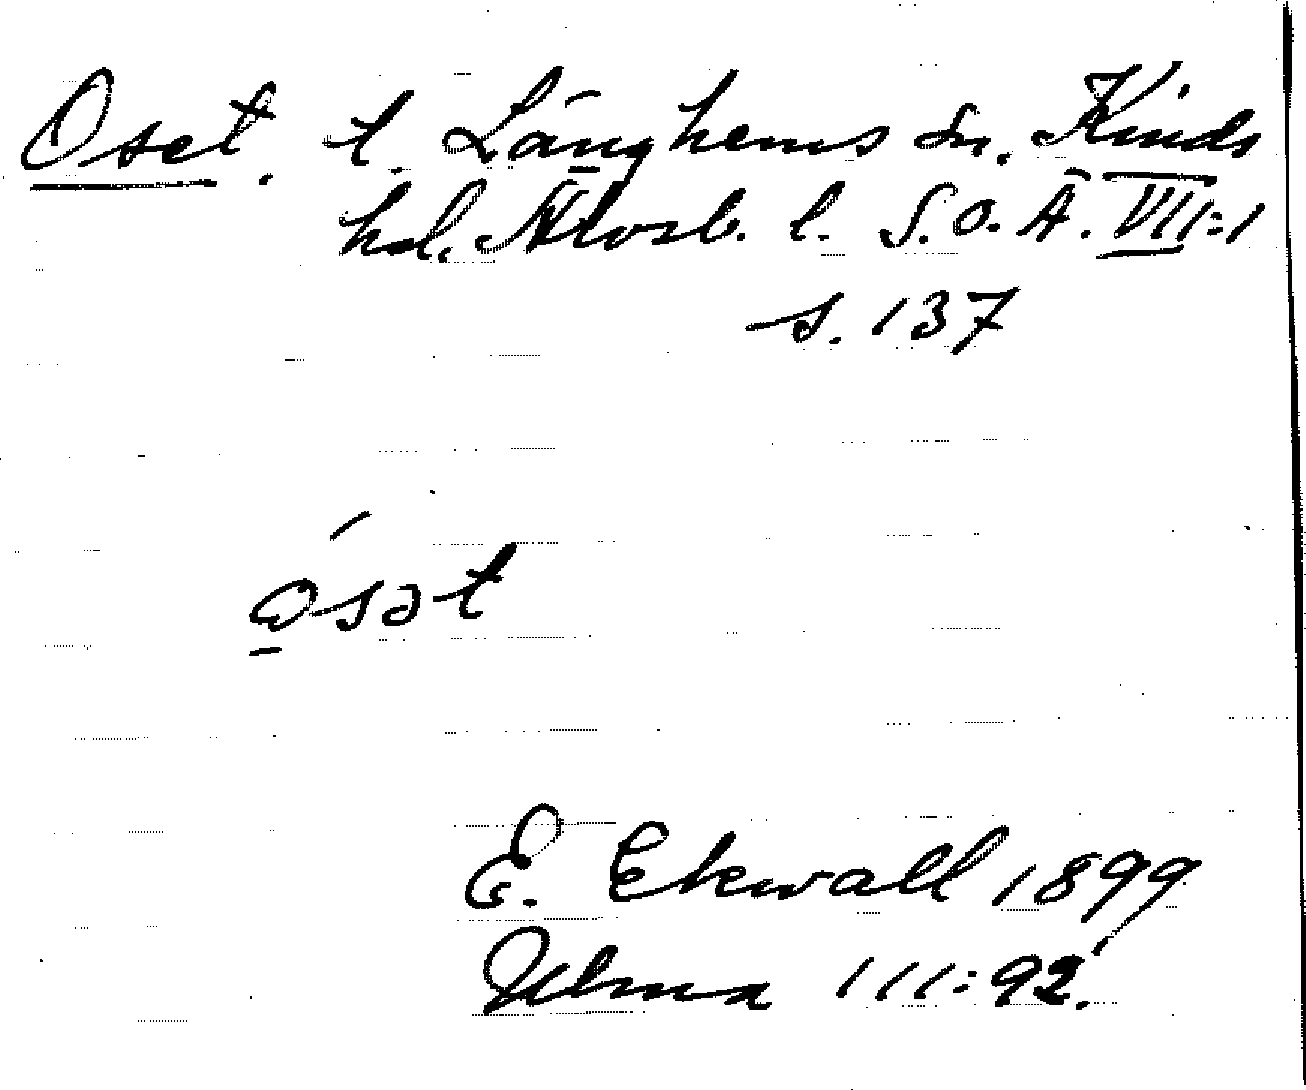 Oset. t. Länghems sn. Kinds
hd. Älvsb. l. S.O.Ä. VII:1
s. 137
ósət
E. Ekwall 1899
Ulma 111:92.